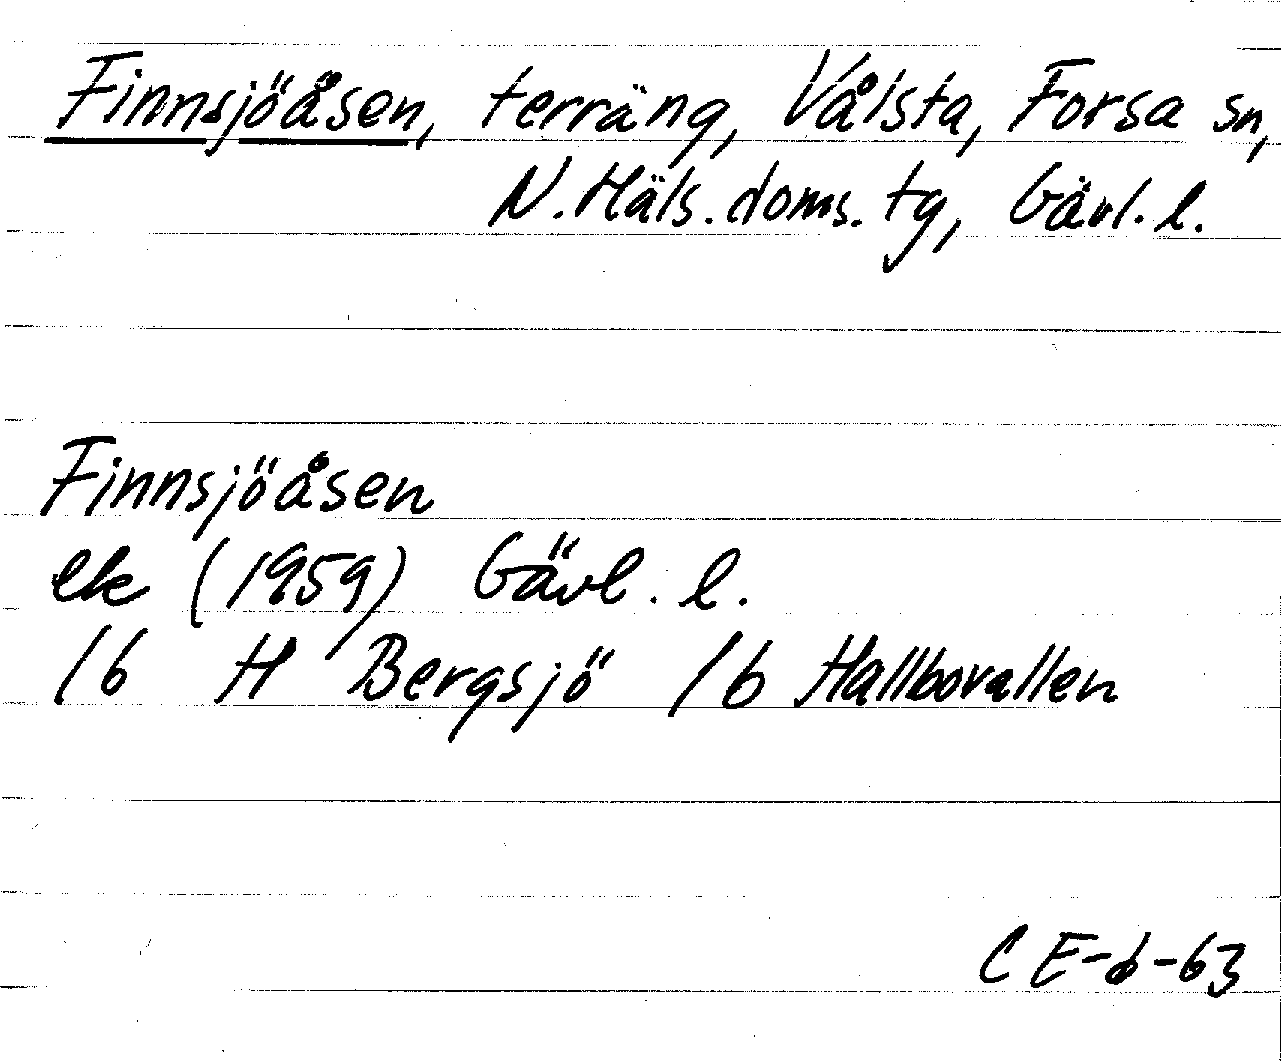 Finnsjöåsen, terräng, Vålsta, Forsa sn,
N. Häls. doms. tg, Gävl. l.
Finnsjöåsen
ek (1959) Gävl. l.
16 H Bergsjö 16 Hallbovallen
C E-b-63